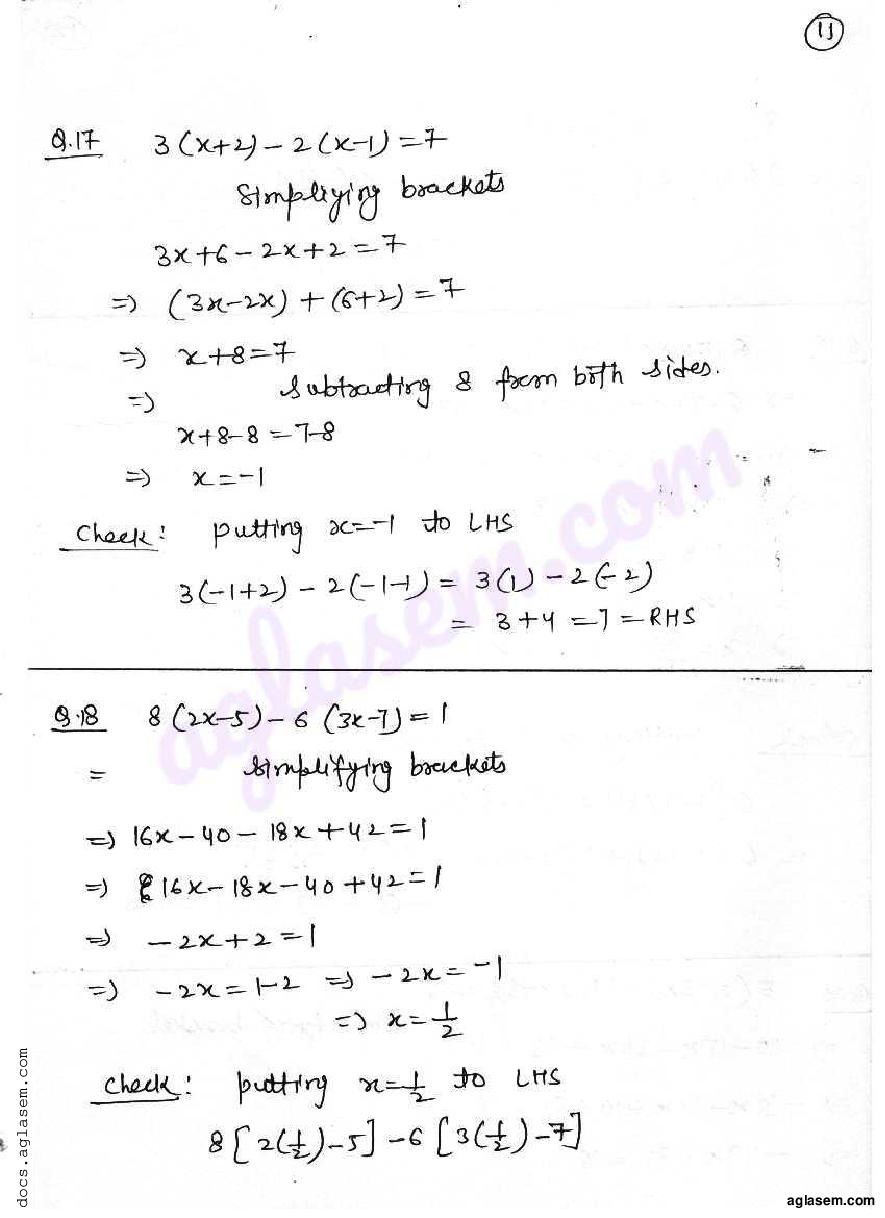 11
Q.17 3(x+2) - 2(x-1) = 7
Simpliying brackets
3x+6-2x+2=7
=) (3x-2x) + (6+2) = 7
=) x+8=7
=) Subtracting 8 from both sides.
x+8-8=7-8
=) x=-1
Check: putting x=-1 to LHS
3(-1+2) - 2(-1-1) = 3(1) - 2(-2)
= 3+4 =7 = RHS
Q.18 8(2x-5) - 6(3x-7) = 1
= Simplifying brackets
=) 16x-40-18x+42=1
=) 16x-18x-40+42=1
=) -2x+2=1
=) -2x=1-2 =) -2x=-1
=) x=1/2
Check: putting x=1/2 to LHS
8[2(1/2)-5]-6[3(1/2)-7]
aglasem.com
docs.aglasem.com
aglasem.com